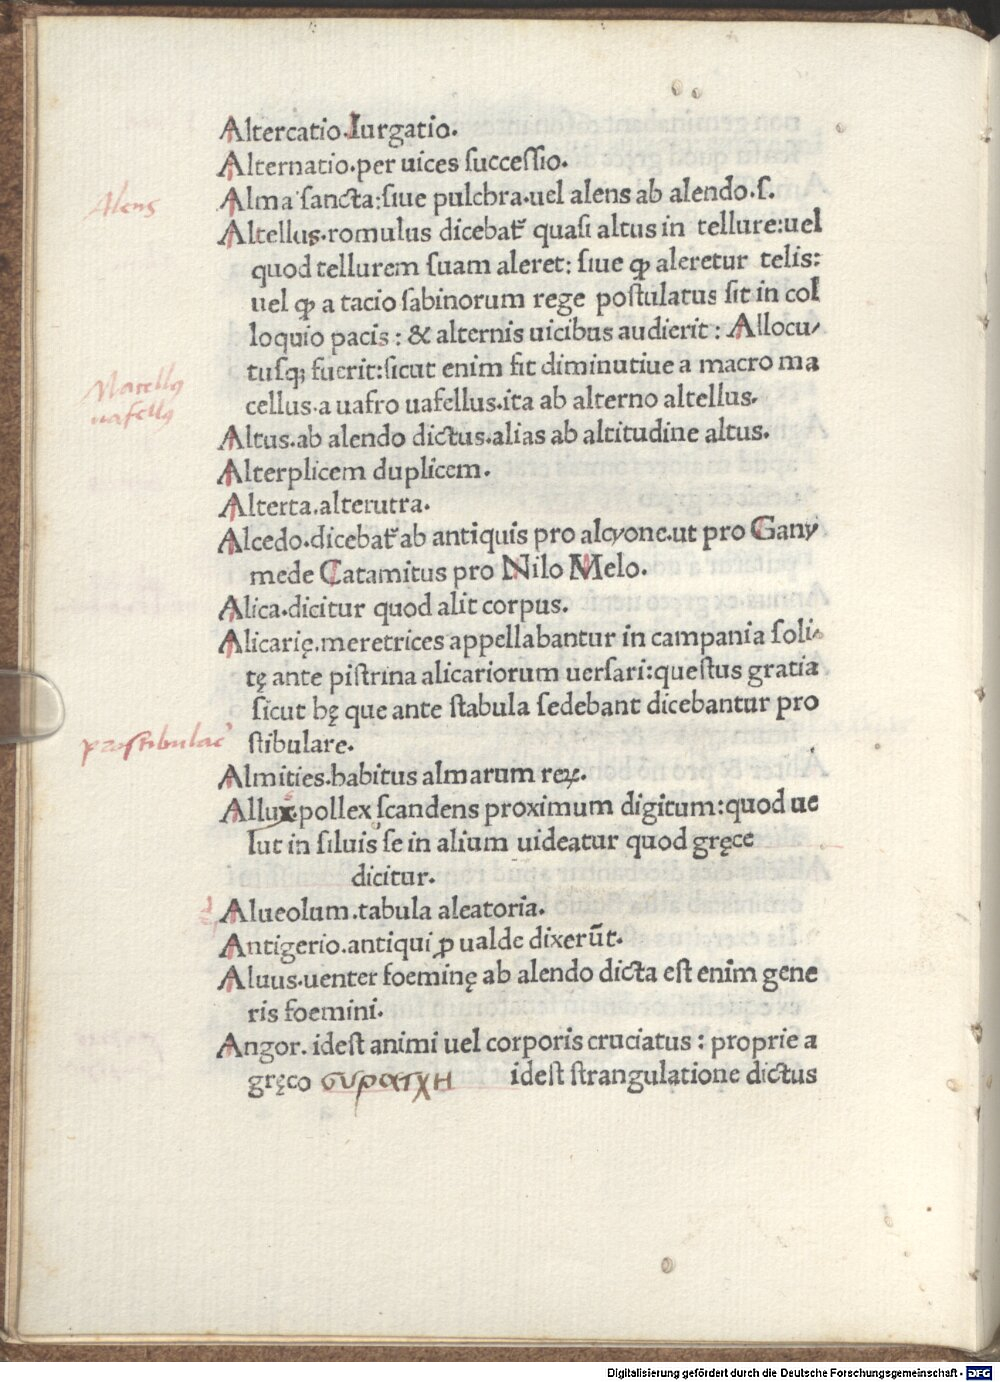 Altercatio.Iurgatio.
Alternatio.per uices ſucceſſio.
Alma ſancta:ſiue pulcbra.uel alens ab alendo.ſ.
Alens
Altellus.romulus dicebat̃ quaſi altus in tellure:uel
quod tellurem ſuam aleret: ſiue ꝙ aleretur telis:
uel ꝙ a tacio ſabinorum rege poſtulatus ſit in col
loquio pacis : & alternis uicibus audierit : Allocu/
tuſq; fuerit:ſicut enim fit diminutiue a macro ma
Macellꝰ
cellus.a uafro uafellus.ita ab alterno altellus.
uafellꝰ
Altus.ab alendo dictus.alias ab altitudine altus.
Alterplicem duplicem.
Alterta.alterutra.
Alcedo.dicebat̃ ab antiquis pro alcyone.ut pro Gany
mede Catamitus pro Nilo Melo.
Alica.dicitur quod alit corpus.
Alicarię.meretrices appellabantur in campania ſoli
tę ante piſtrina alicariorum uerſari:queſtus gratia
ſicut hę que ante ſtabula ſedebant dicebantur pro
ſtibulare.
Almities.habitus almarum reꝝ.
Allux.pollex ſcandens proximum digitum:quod ue
lut in ſiluis ſe in alium uideatur quod gręce
dicitur.
Alueolum.tabula aleatoria.
Antigerio.antiqui ꝓ ualde dixerũt.
Aluus.uenter foeminę ab alendo dicta eſt enim gene
ris foemini.
Angor. ideſt animi uel corporis cruciatus : proprie a
gręco ϲυρατχη ideſt ſtrangulatione dictus
Digitalisierung gefördert durch die Deutsche Forschungsgemeinschaft - DFG